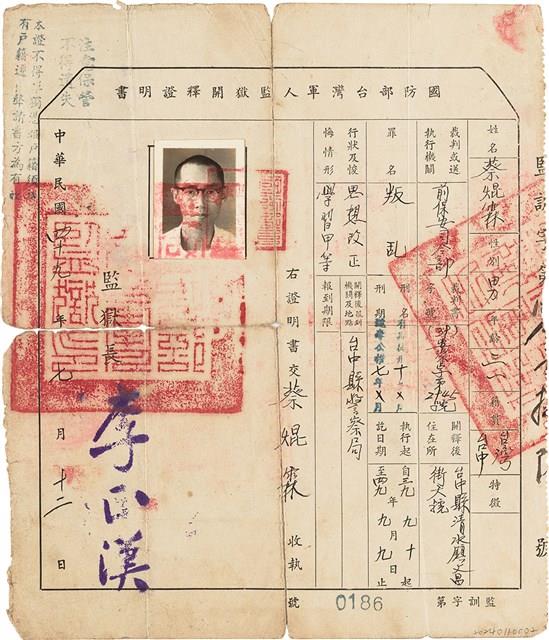 國防部台灣軍人監獄開釋證明書
姓名 蔡焜霖 性別 男 年齡 籍貫 台灣台中 特徵
裁判或送執行機關 前保安司令部 裁判書字號 2145 開釋後住在所 台中縣清水鎮文昌街
罪名 叛乱 刑名 有期徒刑十年×月 刑期 褫奪公權七年×月 執行起訖日期 自三九年九月十日起 至四九年九月九日止
行狀及悛悔情形 思想改正 學習甲等 開釋後報到機關及地點 台中縣警察局
報到期限
右證明書交 蔡焜霖 收執
監獄長 李正漢
中華民國四十九年七月十二日
注意保管
不得遺失
本證不得單獨
監訓字第 0186 號